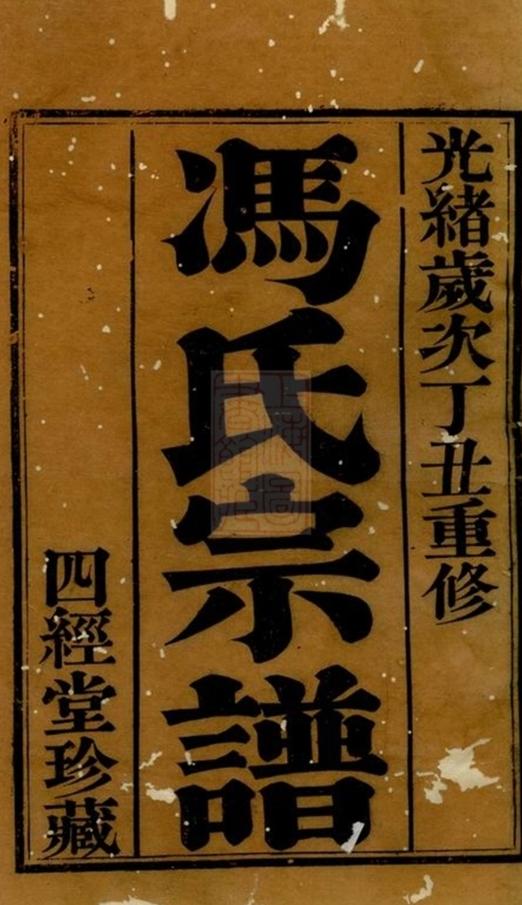 光緒歲次丁丑重修
馮氏宗譜
四經堂珍藏